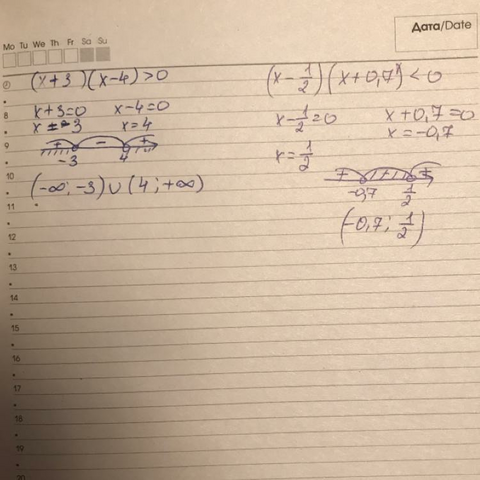 Дата/Date
Mo Tu We Th Fr Sa Su
(x+3)(x-4)>0
x+3=0 x-4=0
x=-3 x=4
+ - +
-3 4
(-∞; -3) ∪ (4; +∞)
(x-1/2)(x+0,7)<0
x-1/2=0 x+0,7=0
x=1/2 x=-0,7
-0,7 1/2
(-0,7; 1/2)
8
9
10
11
12
13
14
15
16
17
18
19
20